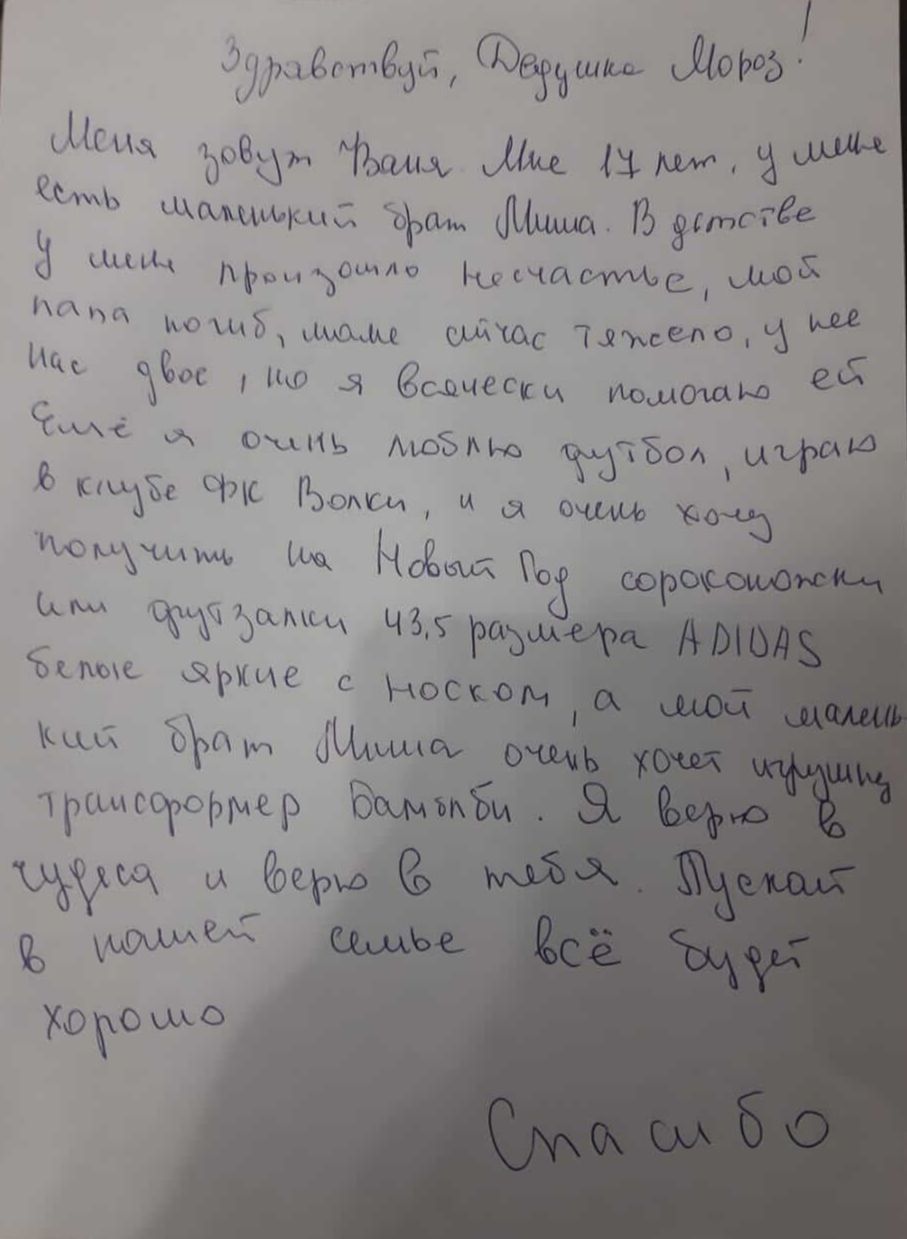 Здравствуй, Дедушка Мороз!
Меня зовут Ваня. Мне 17 лет, у меня
есть маленький брат Миша. В детстве
у меня произошло несчастье, мой
папа погиб, маме сейчас тяжело, у нее
нас двое, но я всячески помогаю ей
Ещё я очень люблю футбол, играю
в клубе ФК Волки, и я очень хочу
получить на Новый Год сороконожки
или футзалки 43,5 размера ADIDAS
белые яркие с носком, а мой малень-
кий брат Миша очень хочет игрушку
трансформер Бамблби. Я верю в
чудеса и верю в тебя. Пускай
в нашей семье всё будет
хорошо
Спасибо